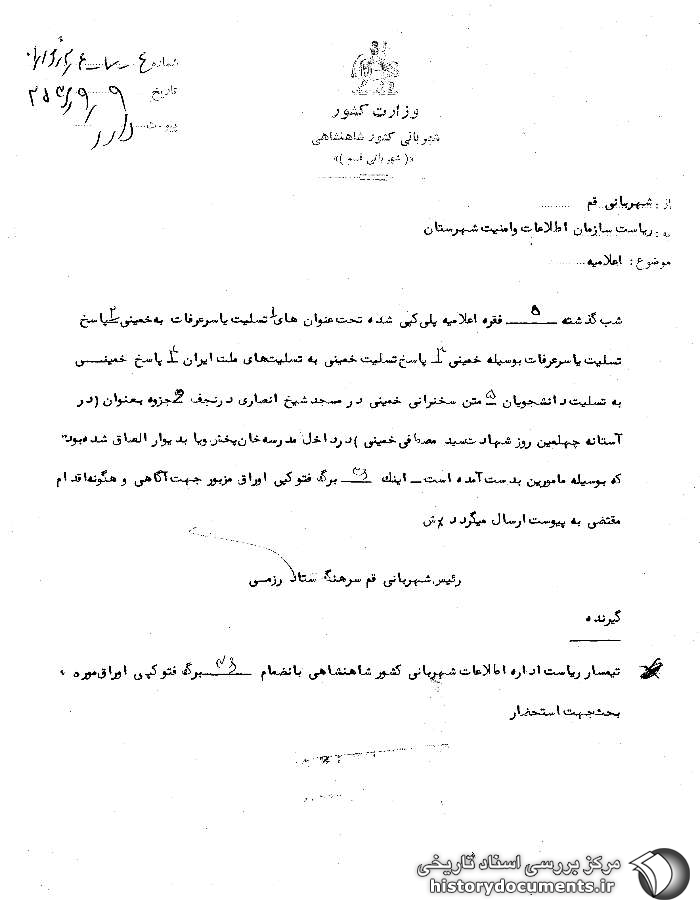 شماره
تاریخ ۲۵۳۶/۹/۹
پیوست دارد
وزارت کشور
شهربانی کشور شاهنشاهی
«( شهربانی قم )»
از : شهربانی قم
به : ریاست سازمان اطلاعات وامنیت شهرستان
موضوع : اعلامیه
شب گذشته ۵ فقره اعلامیه پلی کپی شده تحت عنوان های ۱ تسلیت یاسرعرفات به خمینی ۲ پاسخ
تسلیت یاسرعرفات بوسیله خمینی ۳ پاسخ تسلیت خمینی به تسلیت‌های ملت ایران ۴ پاسخ خمینی
به تسلیت دانشجویان ۵ متن سخنرانی خمینی در مسجد شیخ انصاری درنجف جزوه بعنوان (در
آستانه چهلمین روز شهادت سید مصطفی خمینی )درداخل مدرسه خان پخش ویا بدیوار الصاق شده بود
که بوسیله مامورین بدست آمده است ـ اینک برگ فتوکپی اوراق مزبور جهت آگاهی و هگونه اقدام
مقتضی به پیوست ارسال میگردد
رئیس شهربانی قم سرهنگ ستاد رزمی
گیرنده
تیمسار ریاست اداره اطلاعات شهربانی کشور شاهنشاهی بانضمام برگ فتوکپی اوراق موره
بحث جهت استحضار
مرکز بررسی اسناد تاریخی
historydocuments.ir